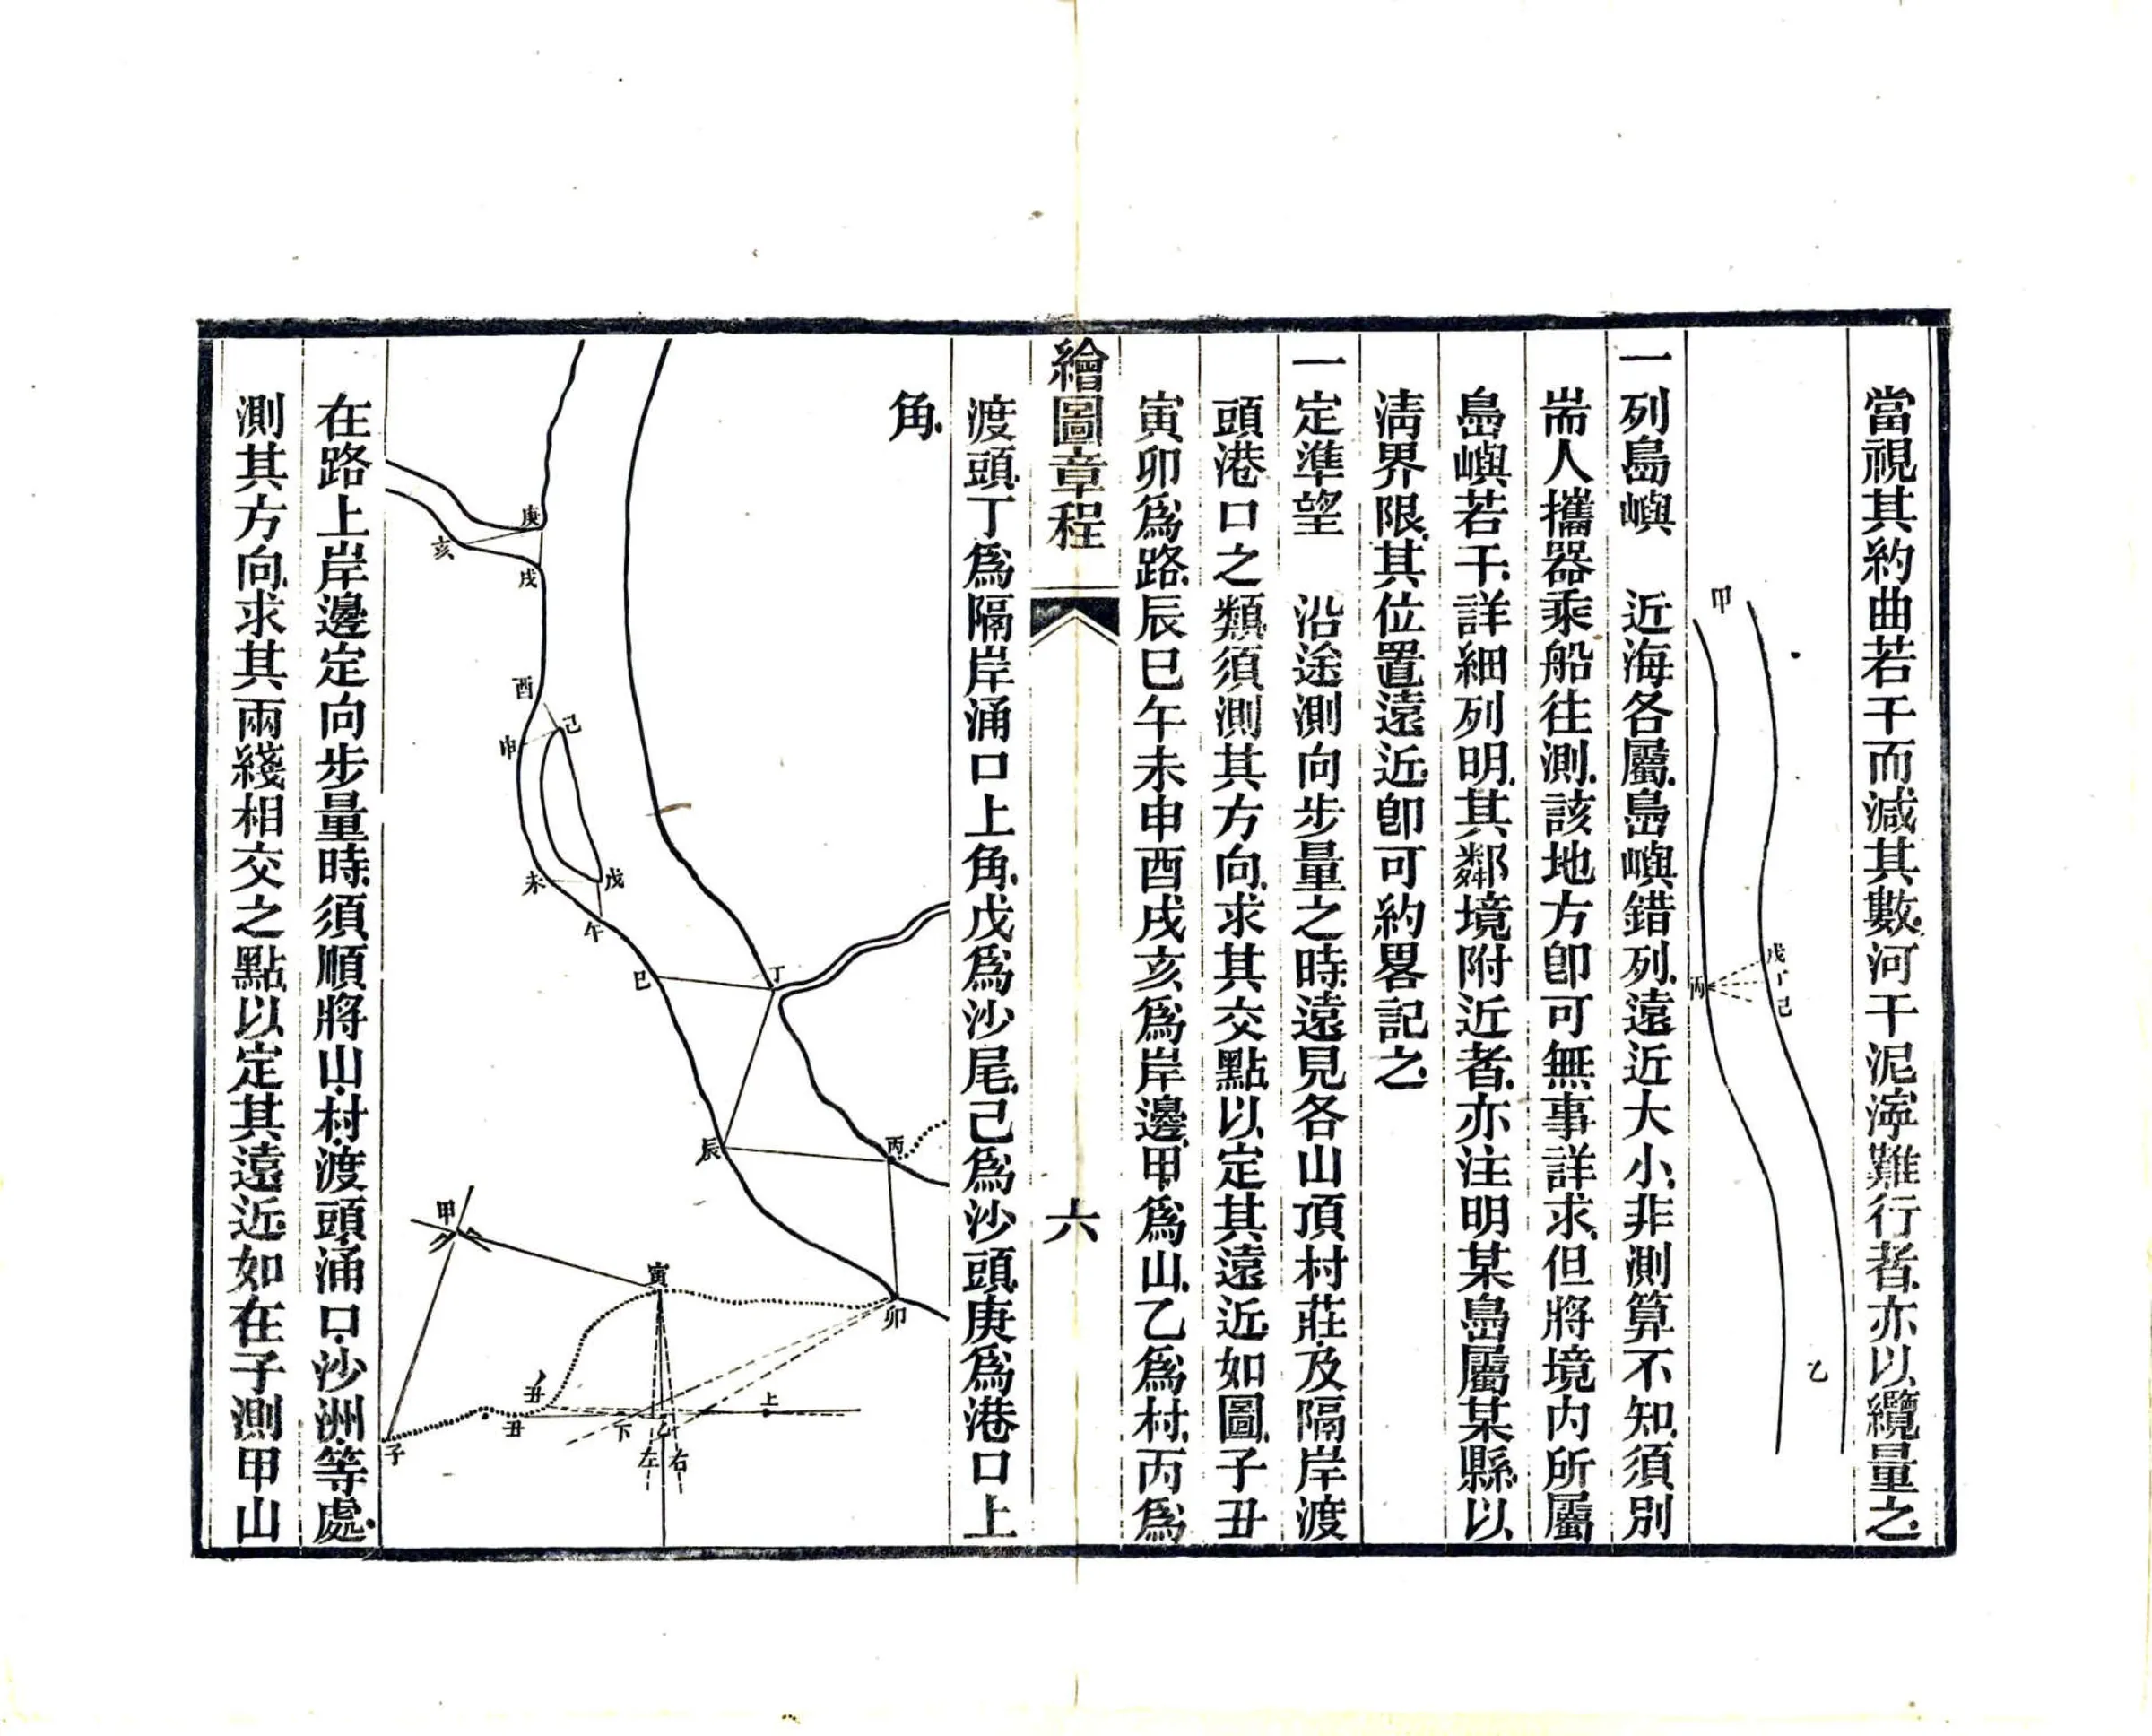 當視其約曲若干而減其數河干泥濘難行者亦以纜量之
甲
戊
丁
己
丙
乙
一列島嶼　近海各屬島嶼錯列遠近大小非測算不知須別
耑人攜器乘船往測該地方卽可無事詳求但將境内所屬
島嶼若干詳細列明其鄰境附近者亦注明某島屬某縣以
淸界限其位置遠近卽可約畧記之
一定準望　沿途測向步量之時遠見各山頂村莊及隔岸渡
頭港口之類須測其方向求其交點以定其遠近如圖子丑
寅卯爲路辰巳午未申酉戌亥爲岸邊甲爲山乙爲村丙爲
繪圖章程
六
渡頭丁爲隔岸涌口上角戊爲沙尾己爲沙頭庚爲港口上
角
庚
亥
戌
酉
己
申
未
戊
午
巳
丁
辰
丙
甲
寅
卯
丑
丑
子
下
乙
上
左
右
在路上岸邊定向步量時須順將山村渡頭涌口沙洲等處
測其方向求其兩綫相交之點以定其遠近如在子測甲山